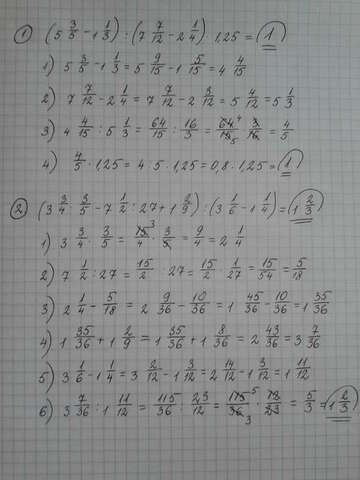 1 (5 3/5 - 1 1/3) : (7 7/12 - 2 1/4) · 1,25 = 1
1) 5 3/5 - 1 1/3 = 5 9/15 - 1 5/15 = 4 4/15
2) 7 7/12 - 2 1/4 = 7 7/12 - 2 3/12 = 5 4/12 = 5 1/3
3) 4 4/15 : 5 1/3 = 64/15 : 16/3 = 64 4/15 5 · 3/16 = 4/5
4) 4/5 · 1,25 = 4 : 5 · 1,25 = 0,8 · 1,25 = 1
2 (3 3/4 · 3/5 - 7 1/2 : 27 + 1 2/9) : (3 1/6 - 1 1/4) = 1 2/3
1) 3 3/4 · 3/5 = 15 3/4 · 3/5 = 9/4 = 2 1/4
2) 7 1/2 : 27 = 15/2 : 27 = 15/2 · 1/27 = 15/54 = 5/18
3) 2 1/4 - 5/18 = 2 9/36 - 10/36 = 1 45/36 - 10/36 = 1 35/36
4) 1 35/36 + 1 2/9 = 1 35/36 + 1 8/36 = 2 43/36 = 3 7/36
5) 3 1/6 - 1 1/4 = 3 2/12 - 1 3/12 = 2 14/12 - 1 3/12 = 1 11/12
6) 3 7/36 : 1 11/12 = 115/36 : 23/12 = 115 5/36 3 · 12/23 = 5/3 = 1 2/3